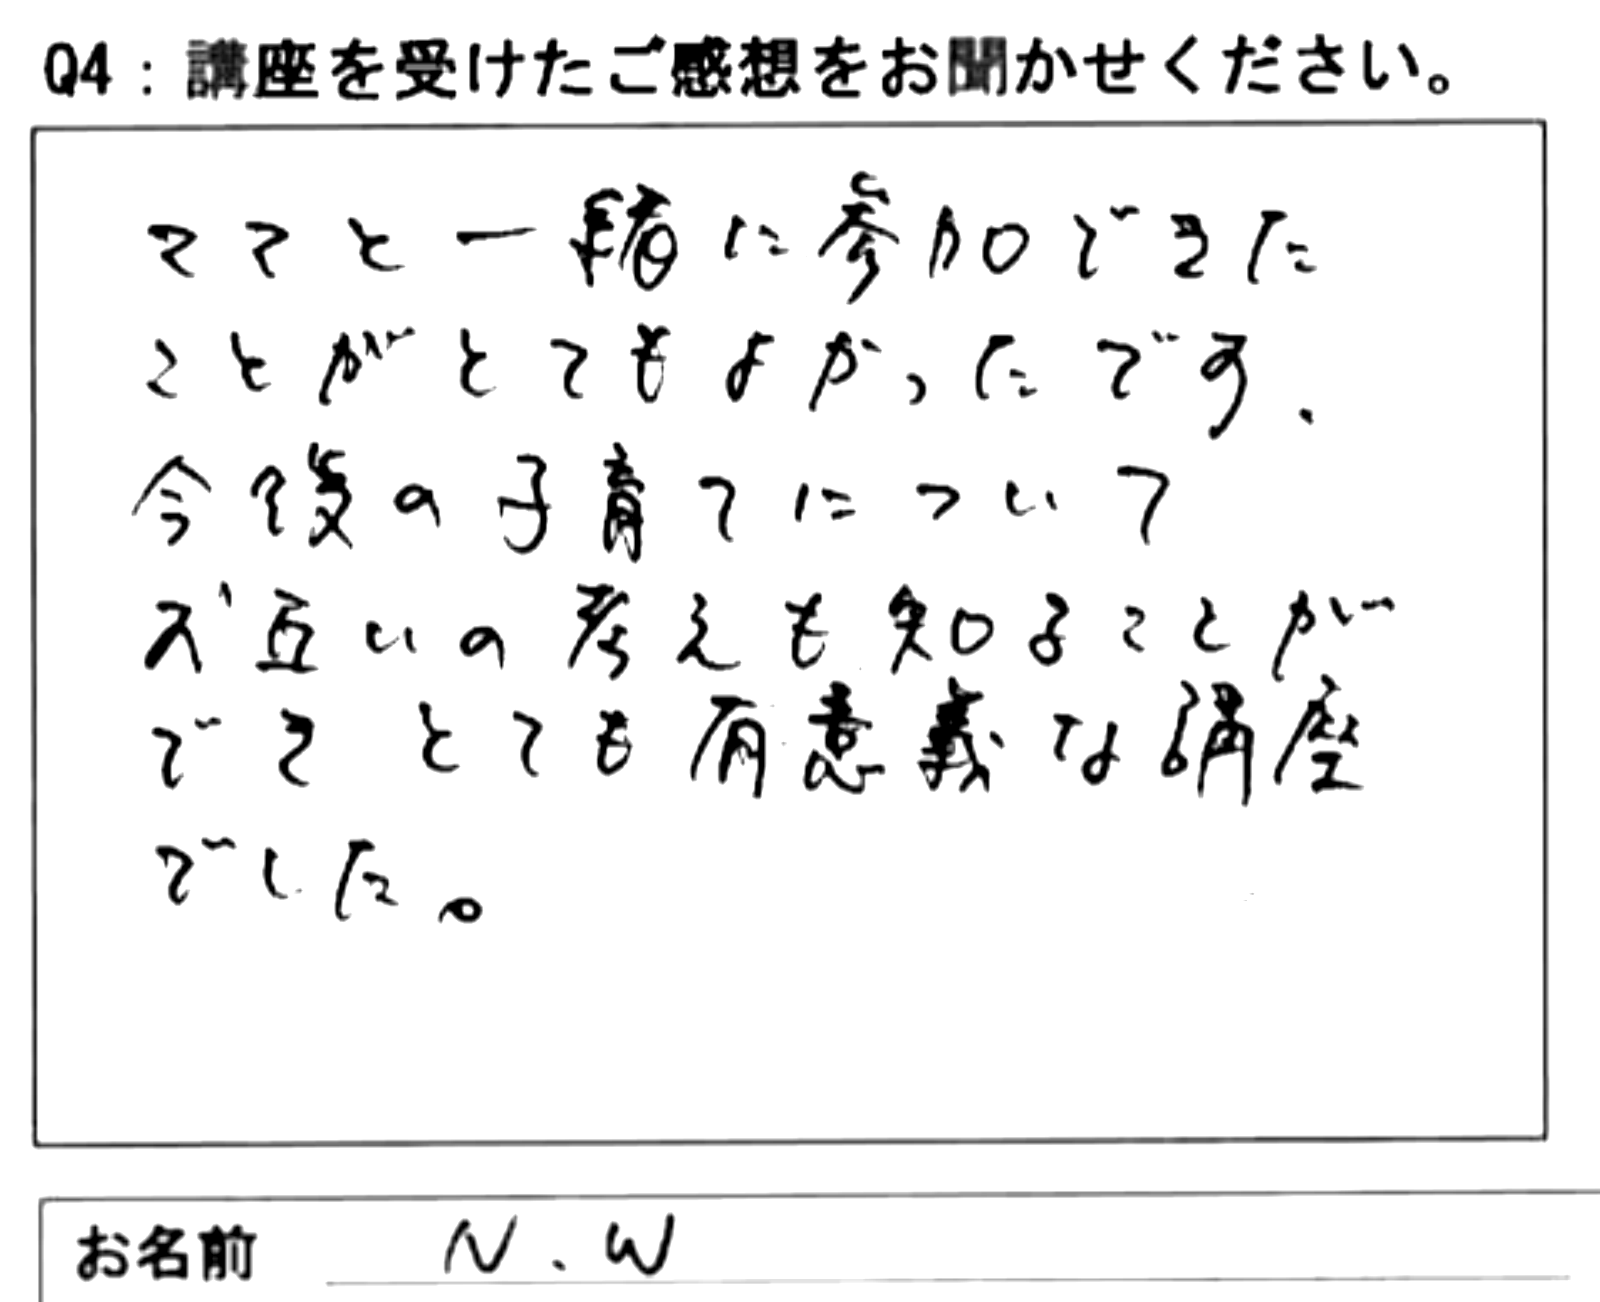 Q4：講座を受けたご感想をお聞かせください。
ママと一緒に参加できた
ことがとてもよかったです.
今後の子育てについて
お互いの考えも知ることが
でき とても有意義な講座
でした。
お名前 N.W